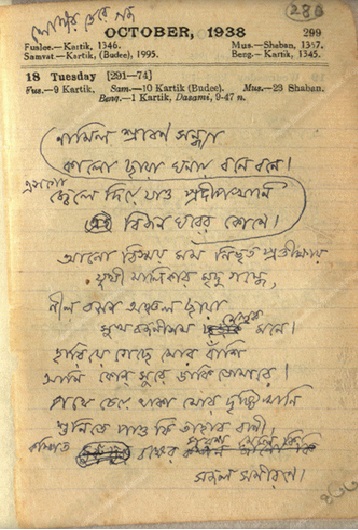 (280)
OCTOBER, 1938 299
Fuslee.—Kartik, 1346. Mus.—Shaban, 1357.
Samvat.—Kartik, (Budee), 1995. Beng.—Kartik, 1345.
18 Tuesday [291—74]
Fus.—9 Kartik. Sam.—10 Kartik (Budee). Mus.—23 Shaban.
Beng.—1 Kartik, Dasami, 9-47 n.
নামিল শ্রাবণ সন্ধ্যা
কালো ছায়া ঘনায় বনে বনে।
এসোগো জ্বেলে দিয়ে যাও প্রদীপখানি
বিজন ঘরের কোণে।
আনো বিস্ময় মম নিভৃত প্রতীক্ষায়
যূথী মালিকার মৃদু গন্ধে,
নীল বসন অঞ্চল ছায়া
সুখরজনীসম মেলুক মনে।
হারিয়ে গেছে মোর বাঁশি
আমি কোন্ সুরে ডাকি তোমারে।
পথে চেয়ে থাকা মোর দৃষ্টিখানি
শুনিতে পাও কি তাহার বাণী,
কম্পিত বক্ষের পরশ মেলে কি
সজল সমীরণে।